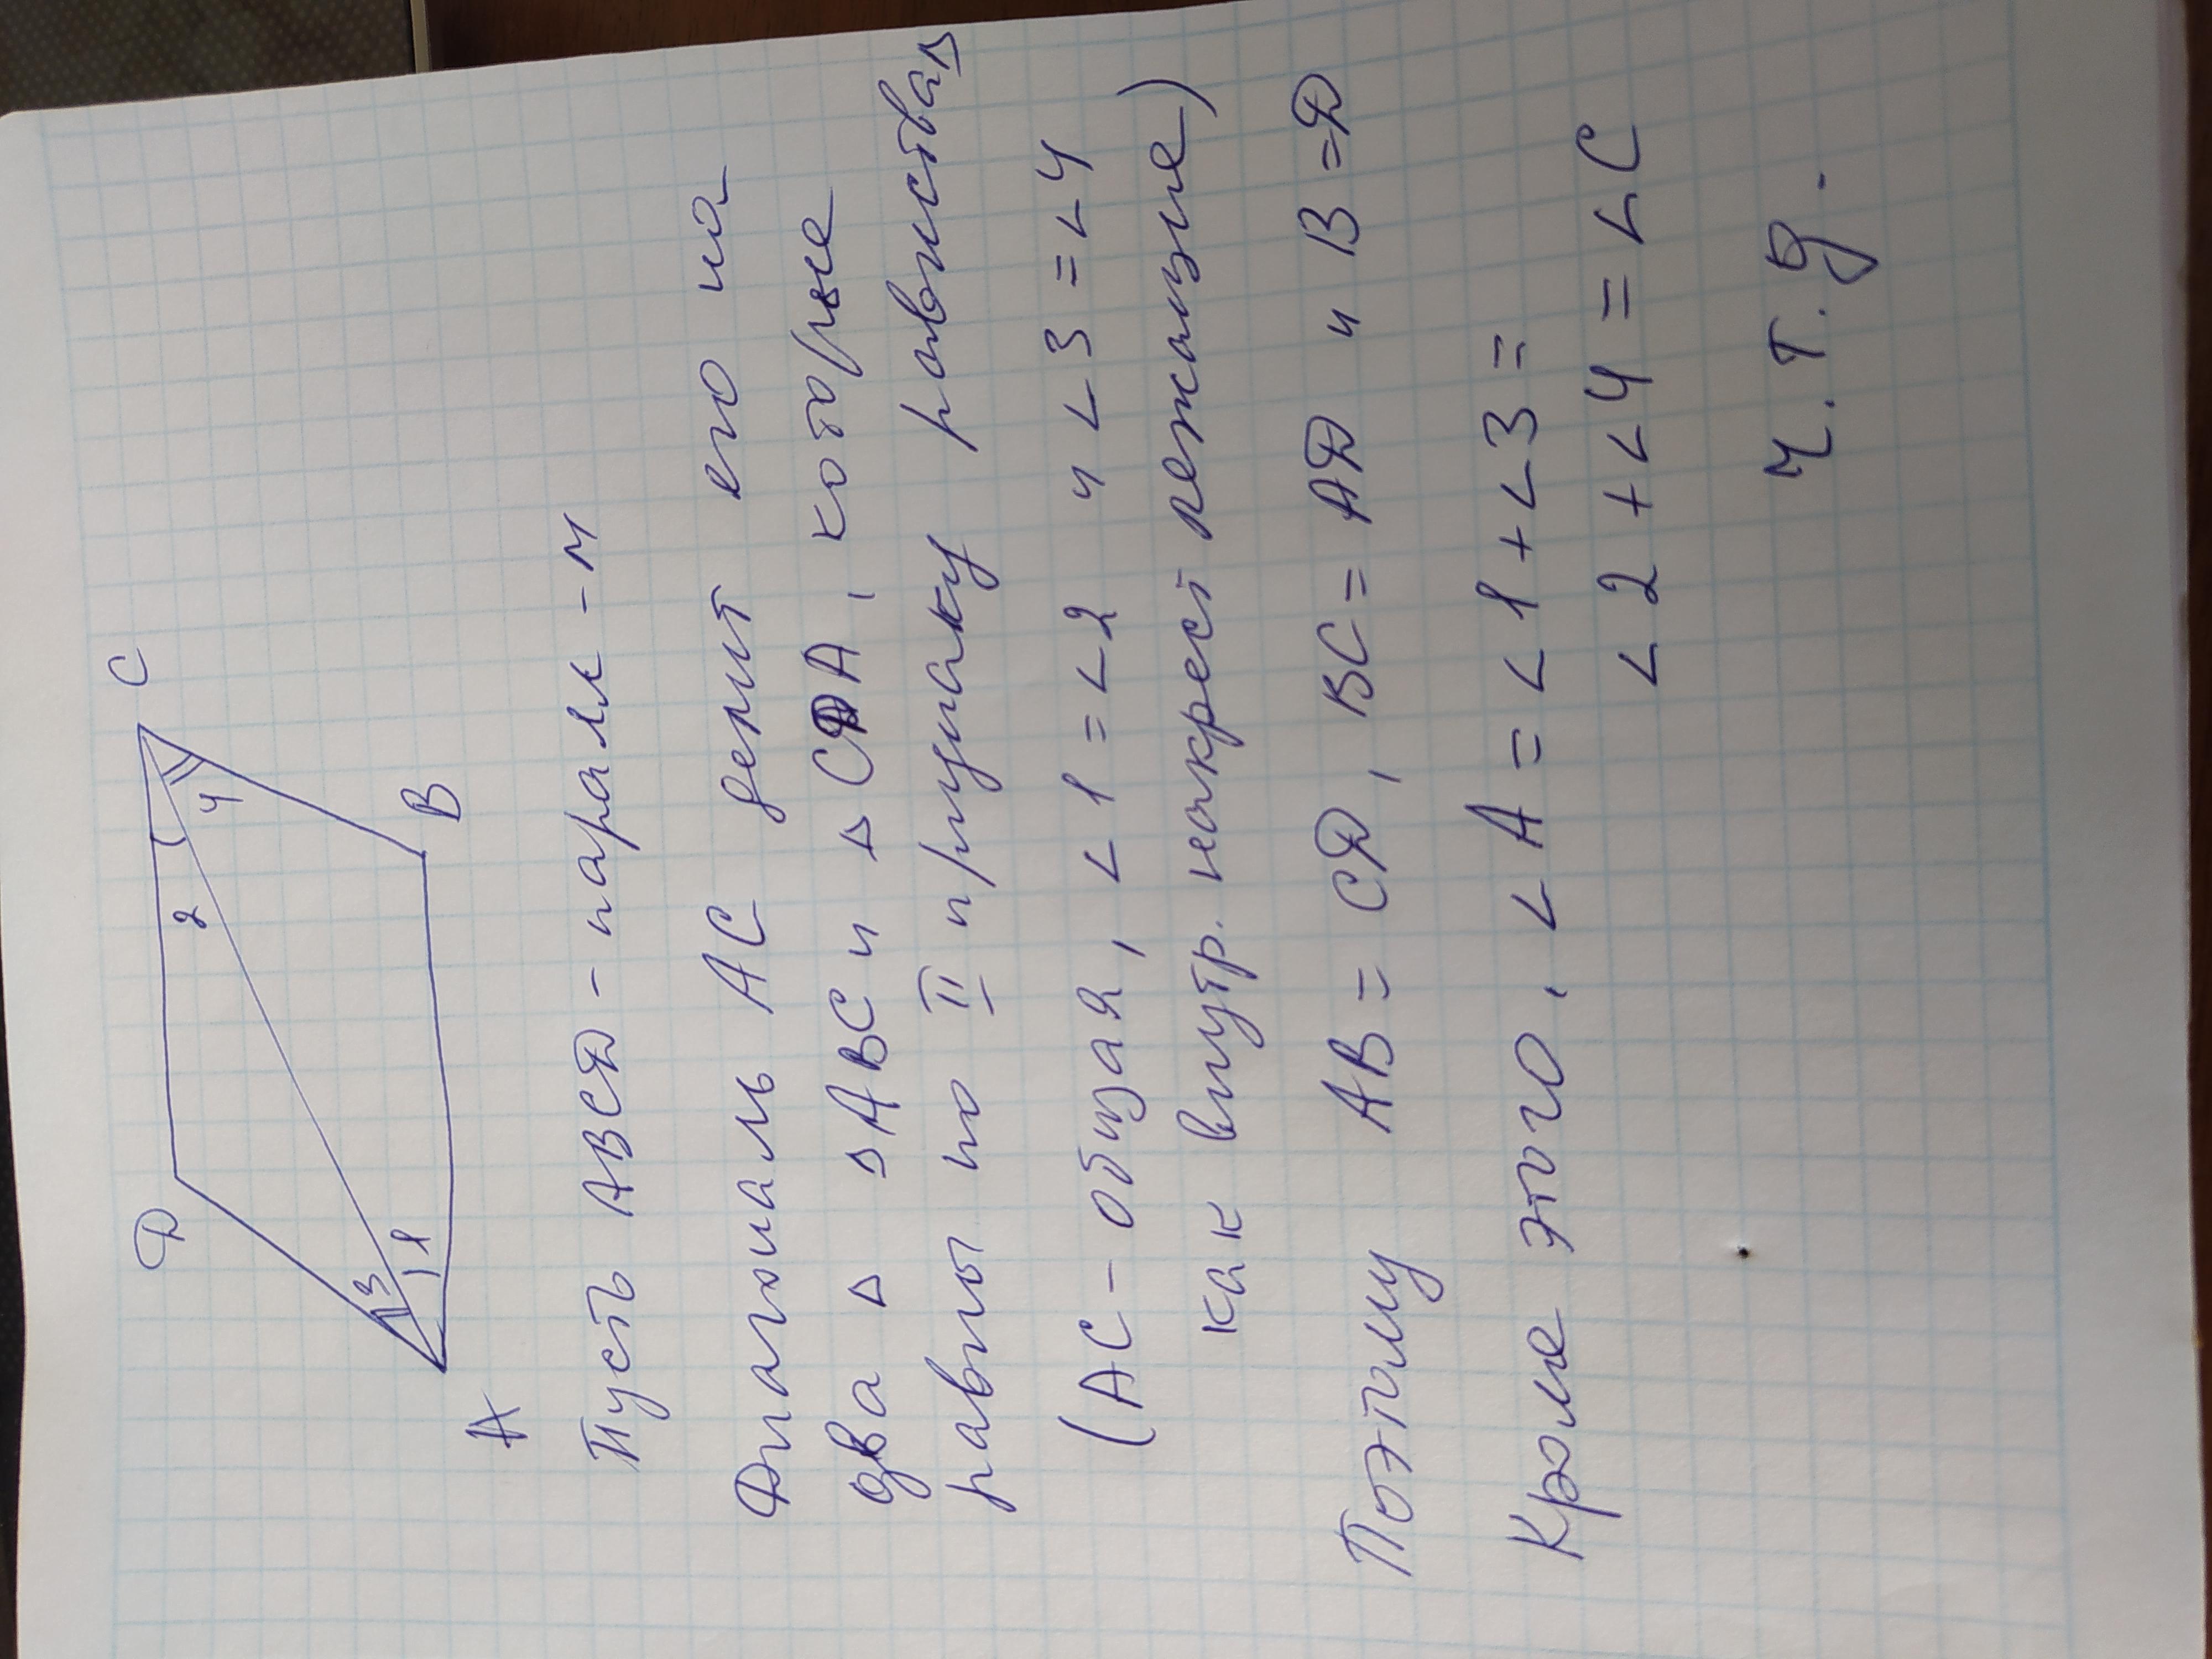 D
C
2
4
3
1
A
B
Пусть ABCD - паралл-м
Диагональ AC делит его на
два △ △ABC и △CDA, которые
равны по II признаку равенства △
(AC - общая, ∠1 = ∠2 и ∠3 = ∠4
как внутр. накрест лежащие)
Поэтому AB = CD, BC = AD и B = D
Кроме этого, ∠A = ∠1 + ∠3 =
∠2 + ∠4 = ∠C
Ч.т.д.